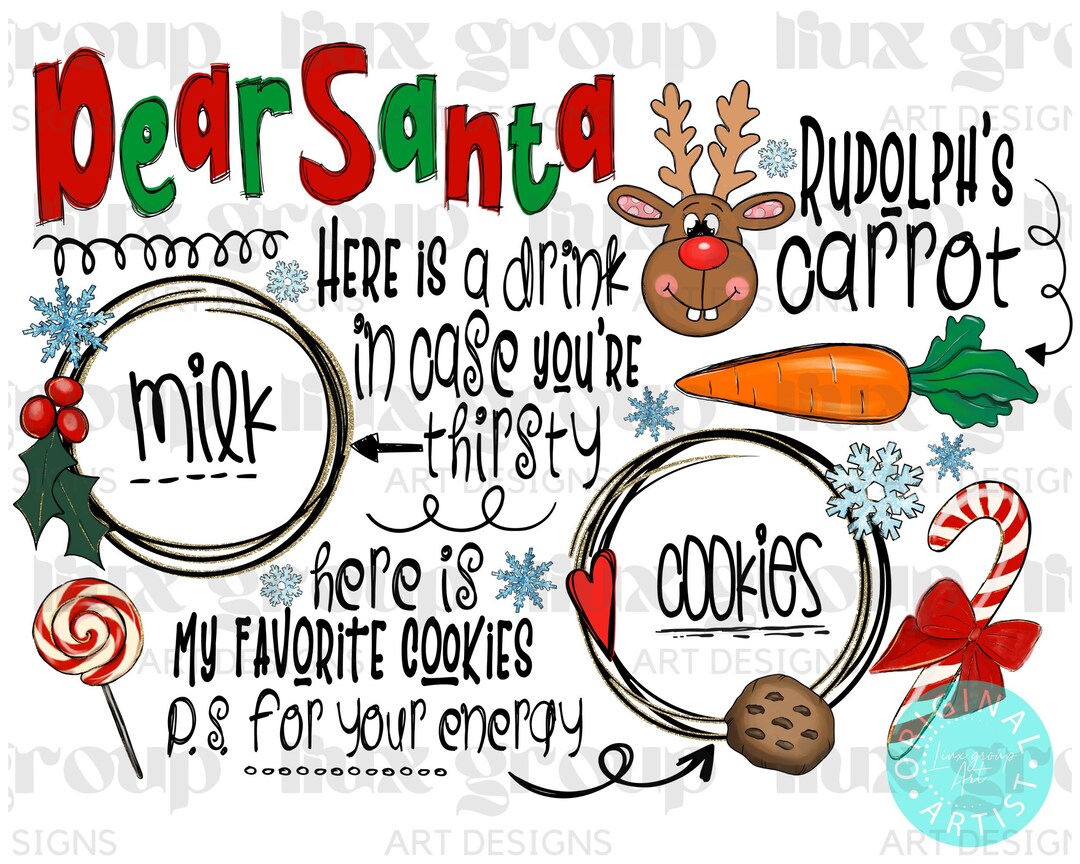 Dear Santa
RUDOLPH'S
carrot
HERE is a drink
in case YOU'RE
thirsty
milk
here is
MY FAVORITE COOKIES
P.S. for your energy
cookies
liux group
ART DESIGNS
ORIGINAL
Liux group
Art
ARTIST